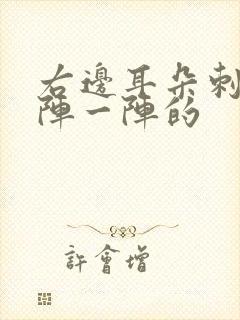 右邊耳朵刺
陣一陣的
許會增